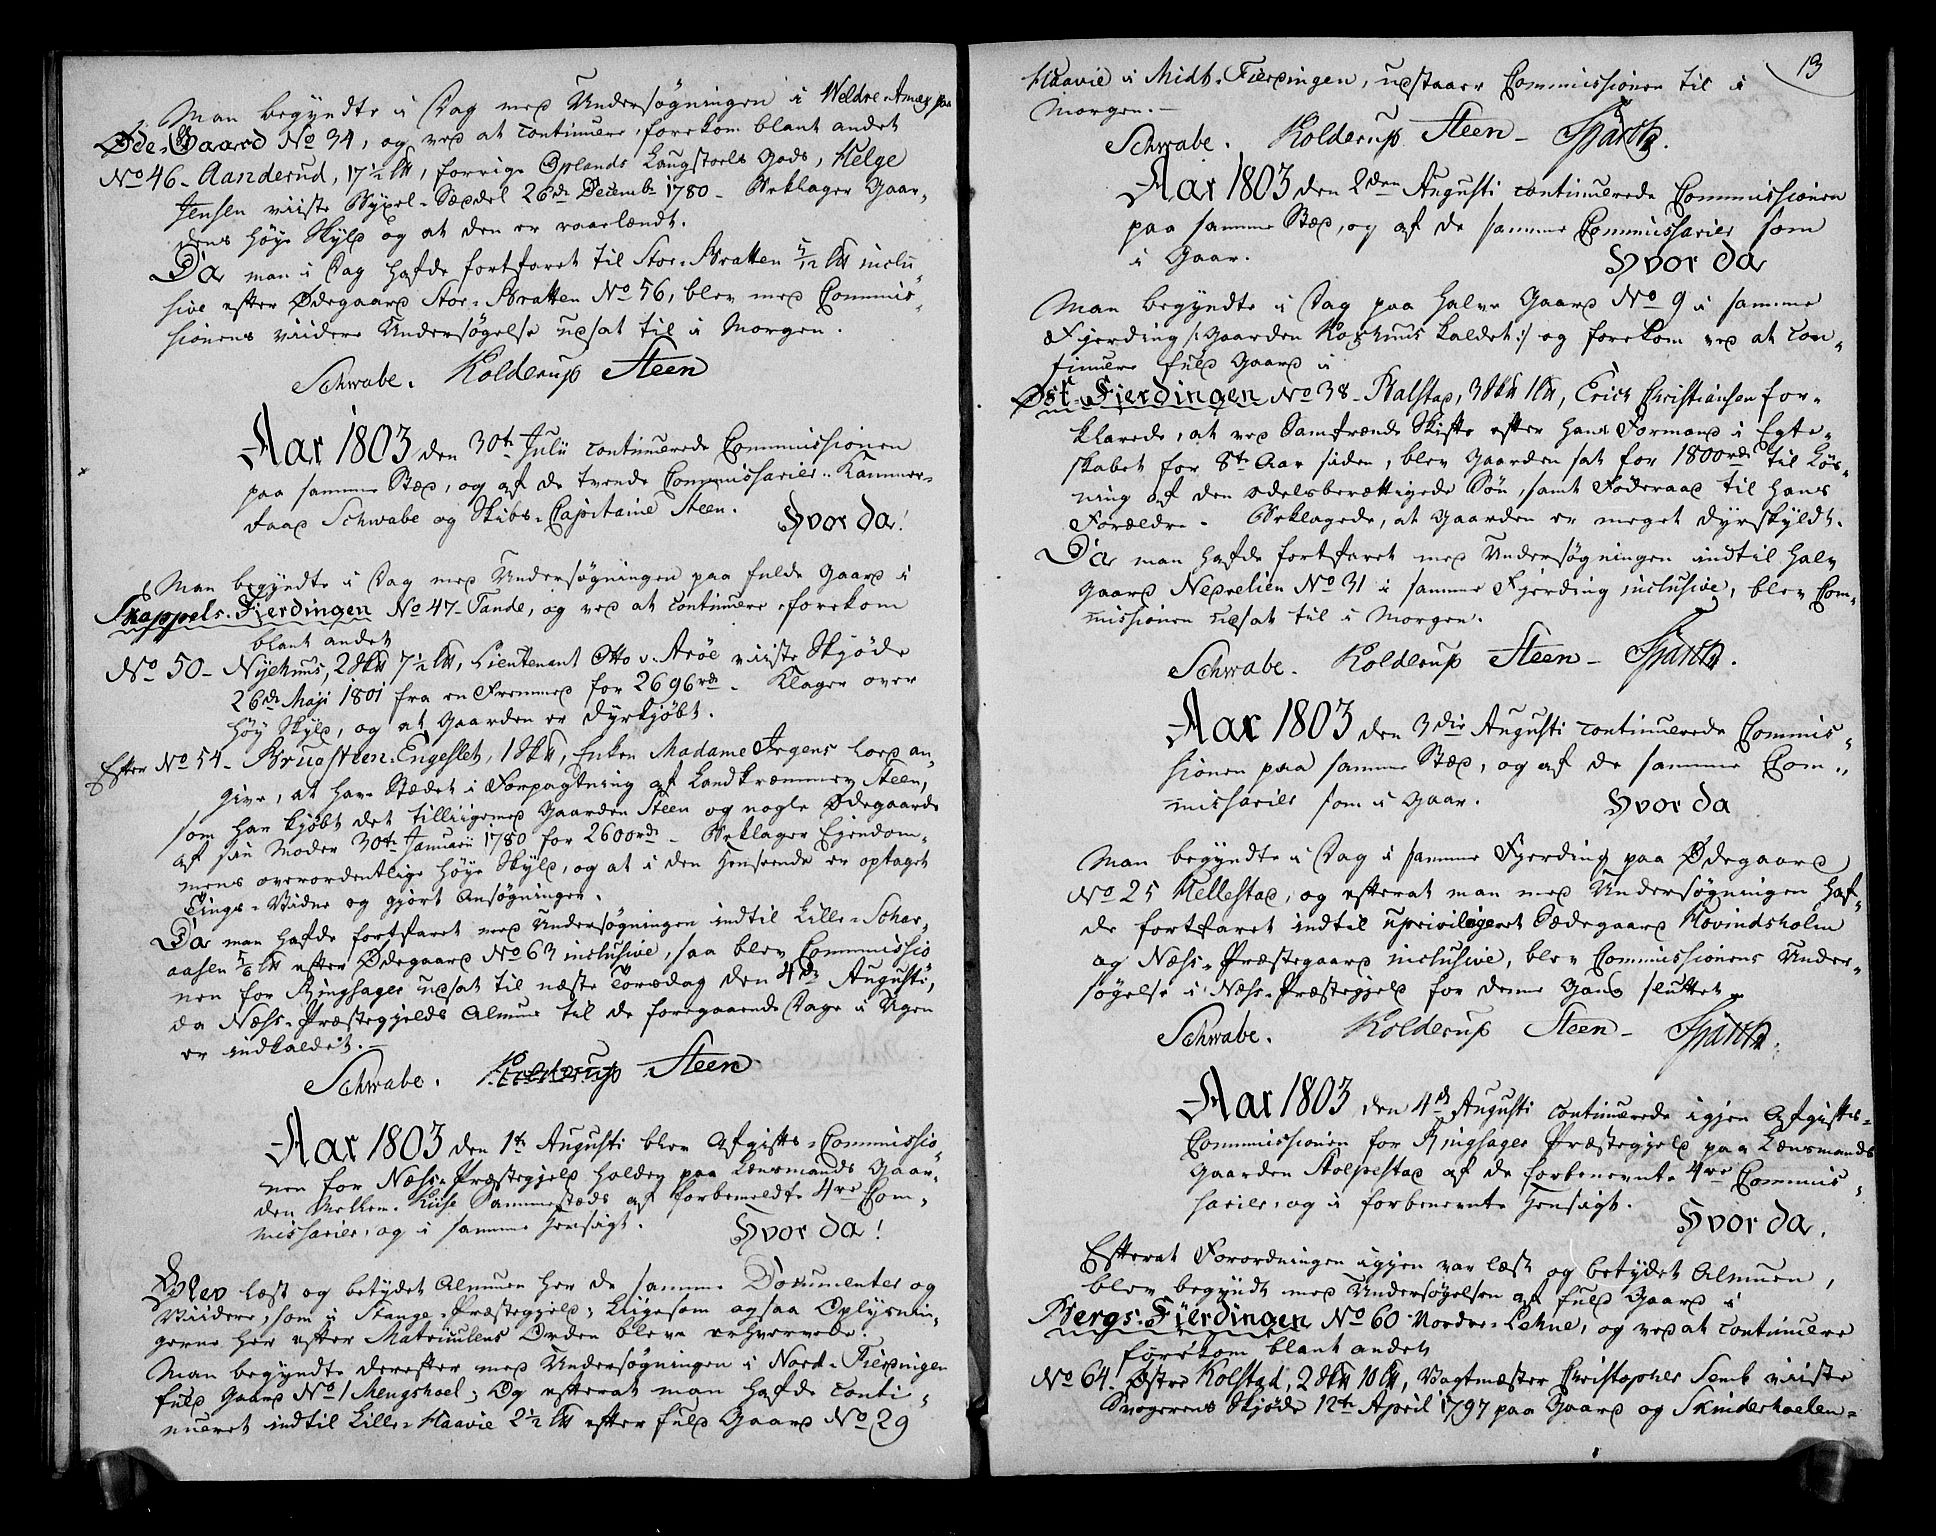 Man begyndte i Dag med Undersøgningen i Weldre-Annex paa
Øde-Gaard No 34, og ved at continuere, forekom blant andet
No 46- Aanderud, 17½ l℔, forrige Oplands Laugstoels Gods, Helge
Jensen viiste Bygsel-Sæddel 26de Decembr 1780 - Beklager Gaar-
dens høye Skyld og at den er vaarlændt.
Da man i Dag hafde fortfaret til Stor-Bratten 5/12 l℔ inclu-
sive efter Ødegaard Stor-Bratten No 56, blev med Commis-
sionens viidere Undersøgelse udsat til i Morgen.
Schwabe. Kolderup Steen
Aar 1803 den 30te Julii continuerede Commissionen
paa samme Stæd, og af de tvende Commissarier.. Kammer-
raad Schwabe og Skibs-Capitaine Steen. Hvor da!
Man begyndte i Dag med Undersøgningen paa fulde Gaard i
Skappels-Fierdingen No 47- Tande, og ved at continuere forekom
blant andet
No 50- Nyehuus, 2 Sk℔ 7½ l℔, Lieutenant Otto v. Aröe viiste Skjøde
26de Maji 1801 fra en Fremmed for 2696rd. Klager over
høy Skyld, og at Gaarden er dyrkjøbt.
Efter No 54- Bruusteen-Engeslet, 1 Sk℔, Enken Madame Irgens lod an-
give, at have Stædet i Forpagtning af Landkræmmer Steen,
som har kjøbt det tilliigemed Gaarden Steen og nogle Ødegaarde
af sin Moder 30te Januarii 1780 for 2600rd - Beklager Eiendom-
mens overordentlige høye Skyld, og at i den Henseende er optaget
Tings-Vidne og gjort Ansøgningen.
Da man hafde fortfaret med Undersøgningen indtil Lille-Schar-
aasen 5/6 l℔ efter Ødegaard No 63 inclusive, saa blev Commissio-
nen for Ringsager udsat til næste Torsdag den 4de Augusti,
da Næss-Præstegjelds Almue til de foregaaende Dage i Ugen
er indkaldet.-
Schwabe. Kolderup Steen
Aar 1803 den 1te Augusti blev Afgifts-Commissio-
nen for Næss-Præstegjeld holden paa Lænsmands Gaar-
den Melkem-Kiise Sammestæds af forbemeldte 4re Com-
missarier, og i samme Hensigt. Hvor da!
Blev læst og betydet Almuen her de samme Documenter og
Viidere, som i Stange-Præstegjeld; Liigesom ogsaa Oplysnin-
gerne her efter Matriculens Orden bleve erhvervede.
Man begyndte derefter med Undersøgningen i Nord-Fierdingen
fuld Gaard No 1 Mengshoel; Og efterat man hafde conti-
nueret indtil Lille-Haavie 2½ l℔ efter fuld Gaard No 29
13
Haavie i Midt-Fierdingen, udstaaer Commissionen til i
Morgen.-
Schwabe. Kolderup Steen- Sparch.
Aar 1803 den 2den Augusti continuerede Commissionen
paa samme Stæd, og af de samme Commissarier som
i Gaar. Hvor da
Man begyndte i Dag paa halve Gaard No 9 i samme
Fjerding /: Gaarden Korshuus kaldet :/ og forekom ved at con-
tinuere fuld Gaard i
Øst-Fierdingen No 38- Balstad, 3 Sk℔ 1 l℔, Erich Christiansen for-
klarede, at ved Samfrænde Skifte efter hans Formand i Egte-
skabet for 8te Aar siden, blev Gaarden sat for 1800rd til Løs-
ning af den odelsberettigede Søn, samt Føderaad til hans
Forældre. Beklagede, at Gaarden er meget dyrskyldt.
Da man hafde fortfaret med Undersøgningen indtil halv
Gaard Nedrelien No 31 i samme Fjerding inclusive, blev Com-
missionen udsat til i Morgen.
Schwabe. Kolderup Steen- Sparch.
Aar 1803 den 3die Augusti continuerede Commis-
sionen paa samme Stæd, og af de samme Com-
missarier som i Gaar. Hvor da
Man begyndte i Dag i samme Fjerding paa Ødegaard
No 25 Hellestad, og efterat man med Undersøgningen haf-
de fortfaret indtil upriviligeret Sædegaard Hovindsholm
og Næss-Præstegaard inclusive, blev Commissionens Under-
søgelse i Næss-Præstegjeld for denne Gang sluttet.
Schwabe. Kolderup Steen- Sparch.
Aar 1803 den 4de Augusti continuerede igjen Afgifts-
Commissionen for Ringsager Præstegjeld paa Lænsmands
Gaarden Stolpestad af de forbenevnte 4re Commis-
sarier, og i forbenevnte Hensigt. Hvor da.
Efterat Forordningen igjen var læst og betydet Almuen,
blev begyndt med Undersøgelsen af fuld Gaard i
Bergs-Fierdingen No 60 Nordre-Lehne, og ved at continuere
forekom blant andet
No 64. Østre Kolstad, 2 Sk℔ 10 l℔, Vagtmæster Christopher Semb viiste
Svogerens Skjøde 12te April 1797 paa Gaard og Skinderhoelen-